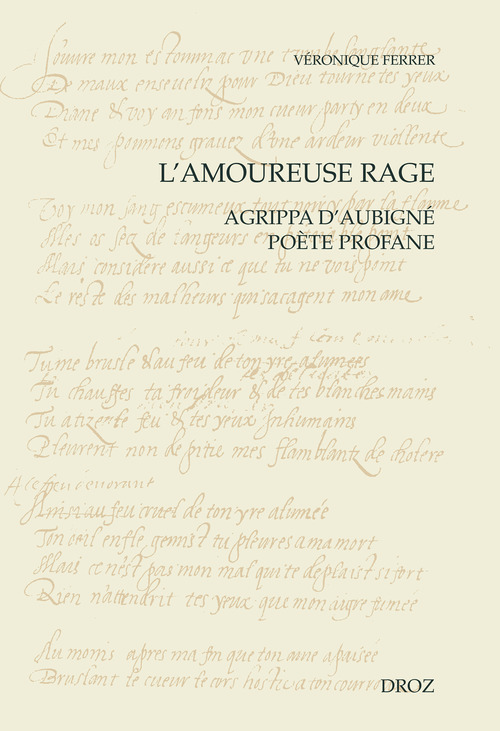 J'ouvre mon estommac une tumbe sanglante
VÉRONIQUE FERRER
De maux enseveliz pour Dieu tourne tes yeux
Diane & voy au fons mon cueur party en deux
Et mes poumons gravez d'une ardeur viollente
L'AMOUREUSE RAGE
AGRIPPA D'AUBIGNÉ
POÈTE PROFANE
Voy mon sang escumeux tout par la flamme
Mes os secz de langueurs en point
Mais considere aussi ce que tu ne vois point
Le reste des malheurs qui sacagent mon ame
Tu me brusle & au feu de ton yre alumee
Tu chauffes ta froideur & de tes blanches mains
Tu atize le feu & tes yeux Inhumains
Pleurent non de pitie mes flambantz de cholere
A ce feu devorant
Ainsi au feu cruel de ton yre alumée
Ton oeil enfle gemist tu pleures a ma mort
Mais ce n'est pas mon mal qui te deplaist si fort
Rien n'attendrit tes yeux que mon aigre fumée
Au moins apres ma fin que ton ame apaisée
Bruslant le cueur le cors hostie a ton courro
DROZ